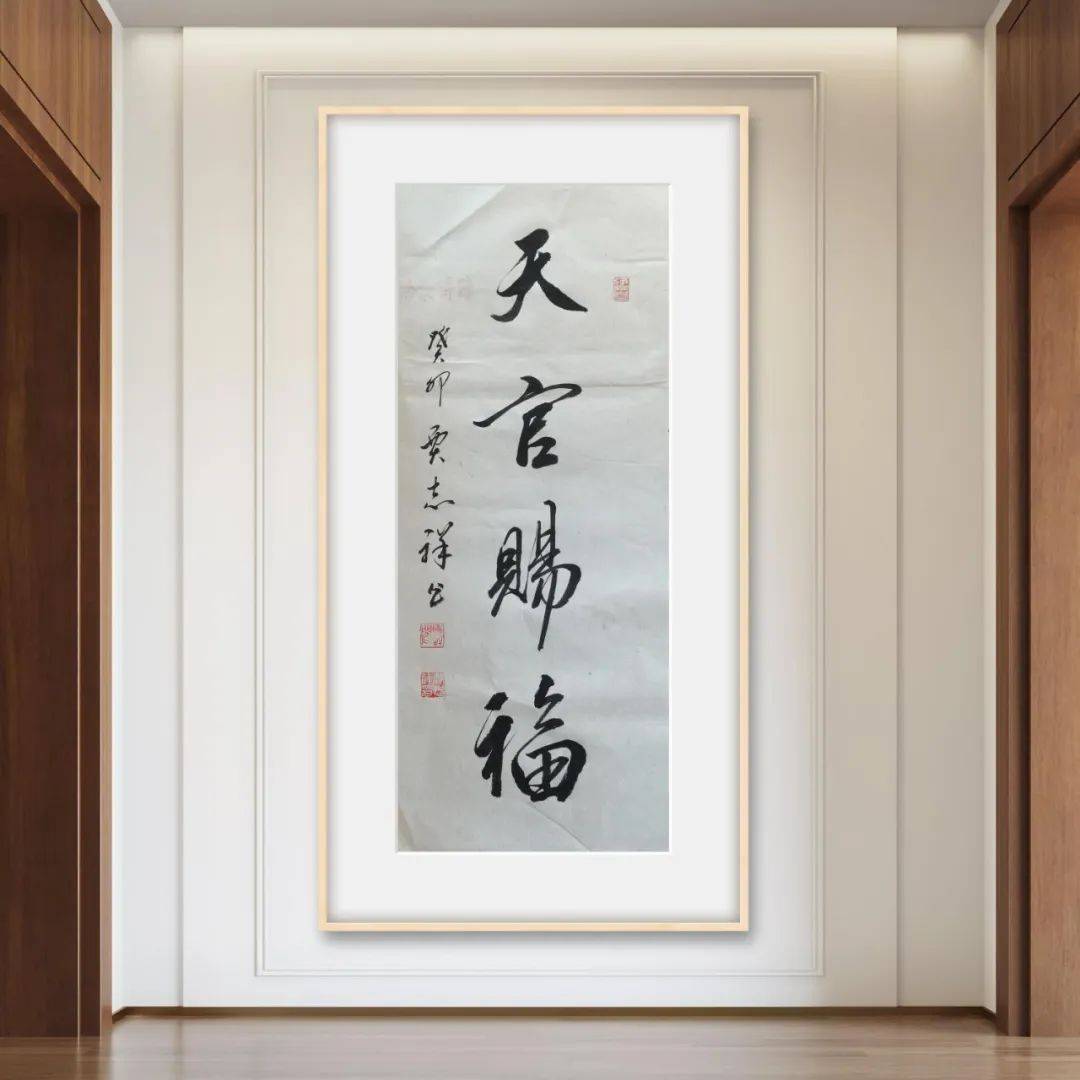 天官赐福
癸卯 贾志祥书